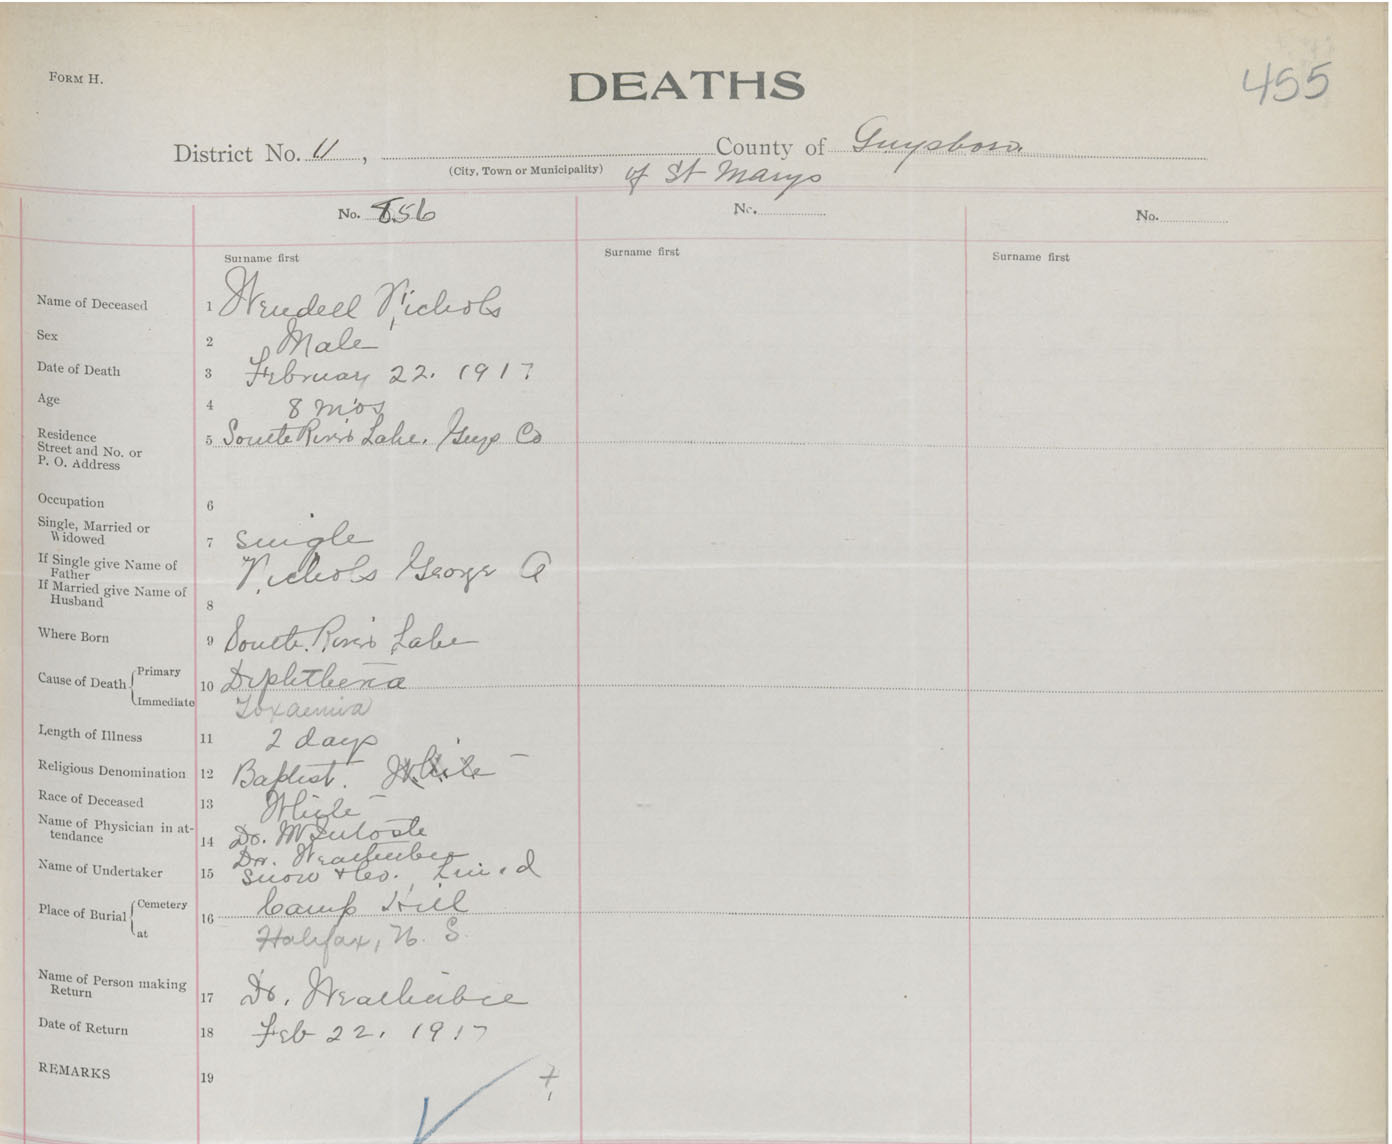 FORM H.
DEATHS
455
District No. 11, County of Guysboro
(City, Town or Municipality) of St Marys
No. 856 No. No.
Surname first Surname first Surname first
Name of Deceased 1 Wendell Nichols
Sex 2 Male
Date of Death 3 February 22. 1917
Age 4 8 mos
Residence
Street and No. or
P. O. Address
5 South River Lake, Guys Co
Occupation 6
Single, Married or
Widowed
7 single
If Single give Name of
Father
Nichols George A
If Married give Name of
Husband
8
Where Born 9 South River Lake
Cause of Death Primary
10 Diphtheria
Immediate
Toxaemia
Length of Illness 11 2 days
Religious Denomination 12 Baptist. White
Race of Deceased 13 White
Name of Physician in at-
tendance
14 Dr. McIntosh
Dr. Weatherbee
Name of Undertaker 15 Snow & Co.
Place of Burial Cemetery
16 Camp Hill
at
Halifax, N. S.
Name of Person making
Return
17 Dr. Weatherbee
Date of Return 18 Feb 22. 1917
REMARKS 19